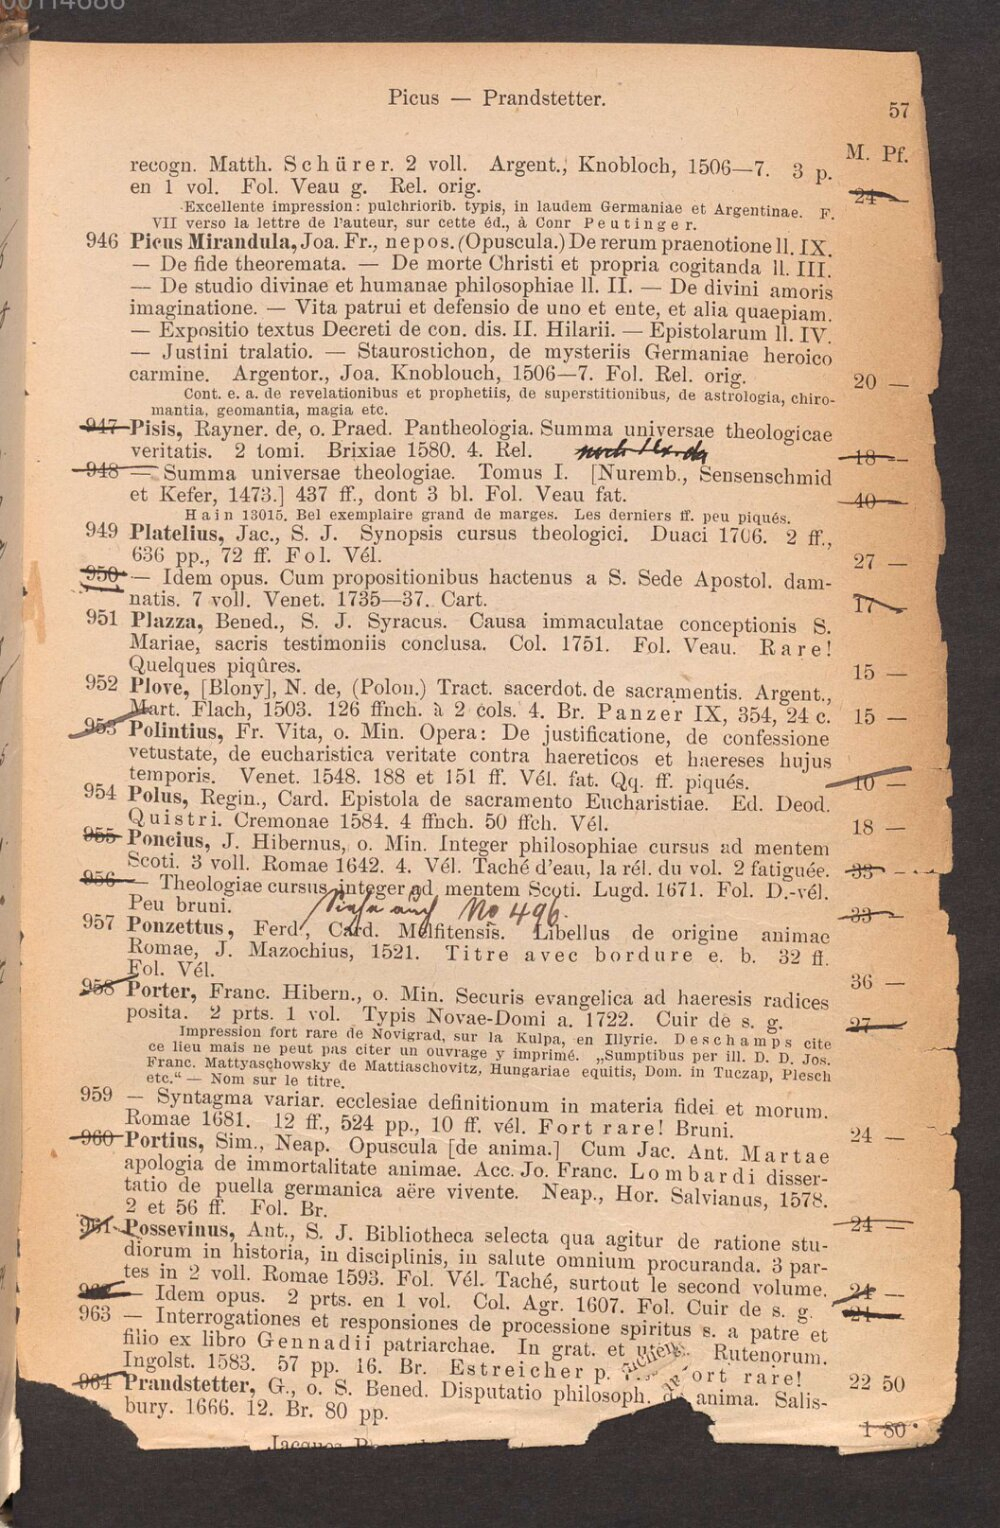 00114686
Picus — Prandstetter.
57
M. Pf.
recogn. Matth. Schürer. 2 voll. Argent., Knobloch, 1506—7. 3 p.
en 1 vol. Fol. Veau g. Rel. orig. 24 —
Excellente impression: pulchriorib. typis, in laudem Germaniae et Argentinae. F.
VII verso la lettre de l'auteur, sur cette éd., à Conr Peutinger.
946 Picus Mirandula, Joa. Fr., nepos. (Opuscula.) De rerum praenotione ll. IX.
— De fide theoremata. — De morte Christi et propria cogitanda ll. III.
— De studio divinae et humanae philosophiae ll. II. — De divini amoris
imaginatione. — Vita patrui et defensio de uno et ente, et alia quaepiam.
— Expositio textus Decreti de con. dis. II. Hilarii. — Epistolarum ll. IV.
— Justini tralatio. — Staurostichon, de mysteriis Germaniae heroico
carmine. Argentor., Joa. Knoblouch, 1506—7. Fol. Rel. orig. 20 —
Cont. e. a. de revelationibus et prophetiis, de superstitionibus, de astrologia, chiro-
mantia, geomantia, magia etc.
947 Pisis, Rayner. de, o. Praed. Pantheologia. Summa universae theologicae
veritatis. 2 tomi. Brixiae 1580. 4. Rel. noch 18 —
948 — Summa universae theologiae. Tomus I. [Nuremb., Sensenschmid
et Kefer, 1473.] 437 ff., dont 3 bl. Fol. Veau fat. 40 —
Hain 13015. Bel exemplaire grand de marges. Les derniers ff. peu piqués.
949 Platelius, Jac., S. J. Synopsis cursus theologici. Duaci 1706. 2 ff.,
636 pp., 72 ff. Fol. Vél. 27 —
950 — Idem opus. Cum propositionibus hactenus a S. Sede Apostol. dam-
natis. 7 voll. Venet. 1735—37. Cart. 17 —
951 Plazza, Bened., S. J. Syracus. Causa immaculatae conceptionis S.
Mariae, sacris testimoniis conclusa. Col. 1751. Fol. Veau. Rare!
Quelques piqûres. 15 —
952 Plove, [Blony], N. de, (Polon.) Tract. sacerdot. de sacramentis. Argent.,
Mart. Flach, 1503. 126 ffnch. à 2 cols. 4. Br. Panzer IX, 354, 24 c. 15 —
953 Polintius, Fr. Vita, o. Min. Opera: De justificatione, de confessione
vetustate, de eucharistica veritate contra haereticos et haereses hujus
temporis. Venet. 1548. 188 et 151 ff. Vél. fat. Qq. ff. piqués. 10 —
954 Polus, Regin., Card. Epistola de sacramento Eucharistiae. Ed. Deod.
Quistri. Cremonae 1584. 4 ffnch. 50 ffch. Vél. 18 —
955 Poncius, J. Hibernus, o. Min. Integer philosophiae cursus ad mentem
Scoti. 3 voll. Romae 1642. 4. Vél. Taché d'eau, la rél. du vol. 2 fatiguée. 33 —
956 — Theologiae cursus integer ad mentem Scoti. Lugd. 1671. Fol. D.-vél.
Peu bruni. Siehe auch No 496. 33 —
957 Ponzettus, Ferd., Card. Melfitensis. Libellus de origine animae
Romae, J. Mazochius, 1521. Titre avec bordure e. b. 32 ff.
Fol. Vél. 36 —
958 Porter, Franc. Hibern., o. Min. Securis evangelica ad haeresis radices
posita. 2 prts. 1 vol. Typis Novae-Domi a. 1722. Cuir de s. g. 27 —
Impression fort rare de Novigrad, sur la Kulpa, en Illyrie. Deschamps cite
ce lieu mais ne peut pas citer un ouvrage y imprimé. „Sumptibus per ill. D. D. Jos.
Franc. Mattyaschowsky de Mattiaschovitz, Hungariae equitis, Dom. in Tuczap, Plesch
etc.“ — Nom sur le titre.
959 — Syntagma variar. ecclesiae definitionum in materia fidei et morum.
Romae 1681. 12 ff., 524 pp., 10 ff. vél. Fort rare! Bruni. 24 —
960 Portius, Sim., Neap. Opuscula [de anima.] Cum Jac. Ant. Martae
apologia de immortalitate animae. Acc. Jo. Franc. Lombardi disser-
tatio de puella germanica aëre vivente. Neap., Hor. Salvianus, 1578.
2 et 56 ff. Fol. Br. 24 —
961 Possevinus, Ant., S. J. Bibliotheca selecta qua agitur de ratione stu-
diorum in historia, in disciplinis, in salute omnium procuranda. 3 par-
tes in 2 voll. Romae 1593. Fol. Vél. Taché, surtout le second volume. 24 —
962 — Idem opus. 2 prts. en 1 vol. Col. Agr. 1607. Fol. Cuir de s. g. 24 —
963 — Interrogationes et responsiones de processione spiritus s. a patre et
filio ex libro Gennadii patriarchae. In grat. et Rutenorum.
Ingolst. 1583. 57 pp. 16. Br. Estreicher p. ort rare! 22 50
964 Prandstetter, G., o. S. Bened. Disputatio philosoph. anima. Salis-
bury. 1666. 12. Br. 80 pp. 1 80
Jacques